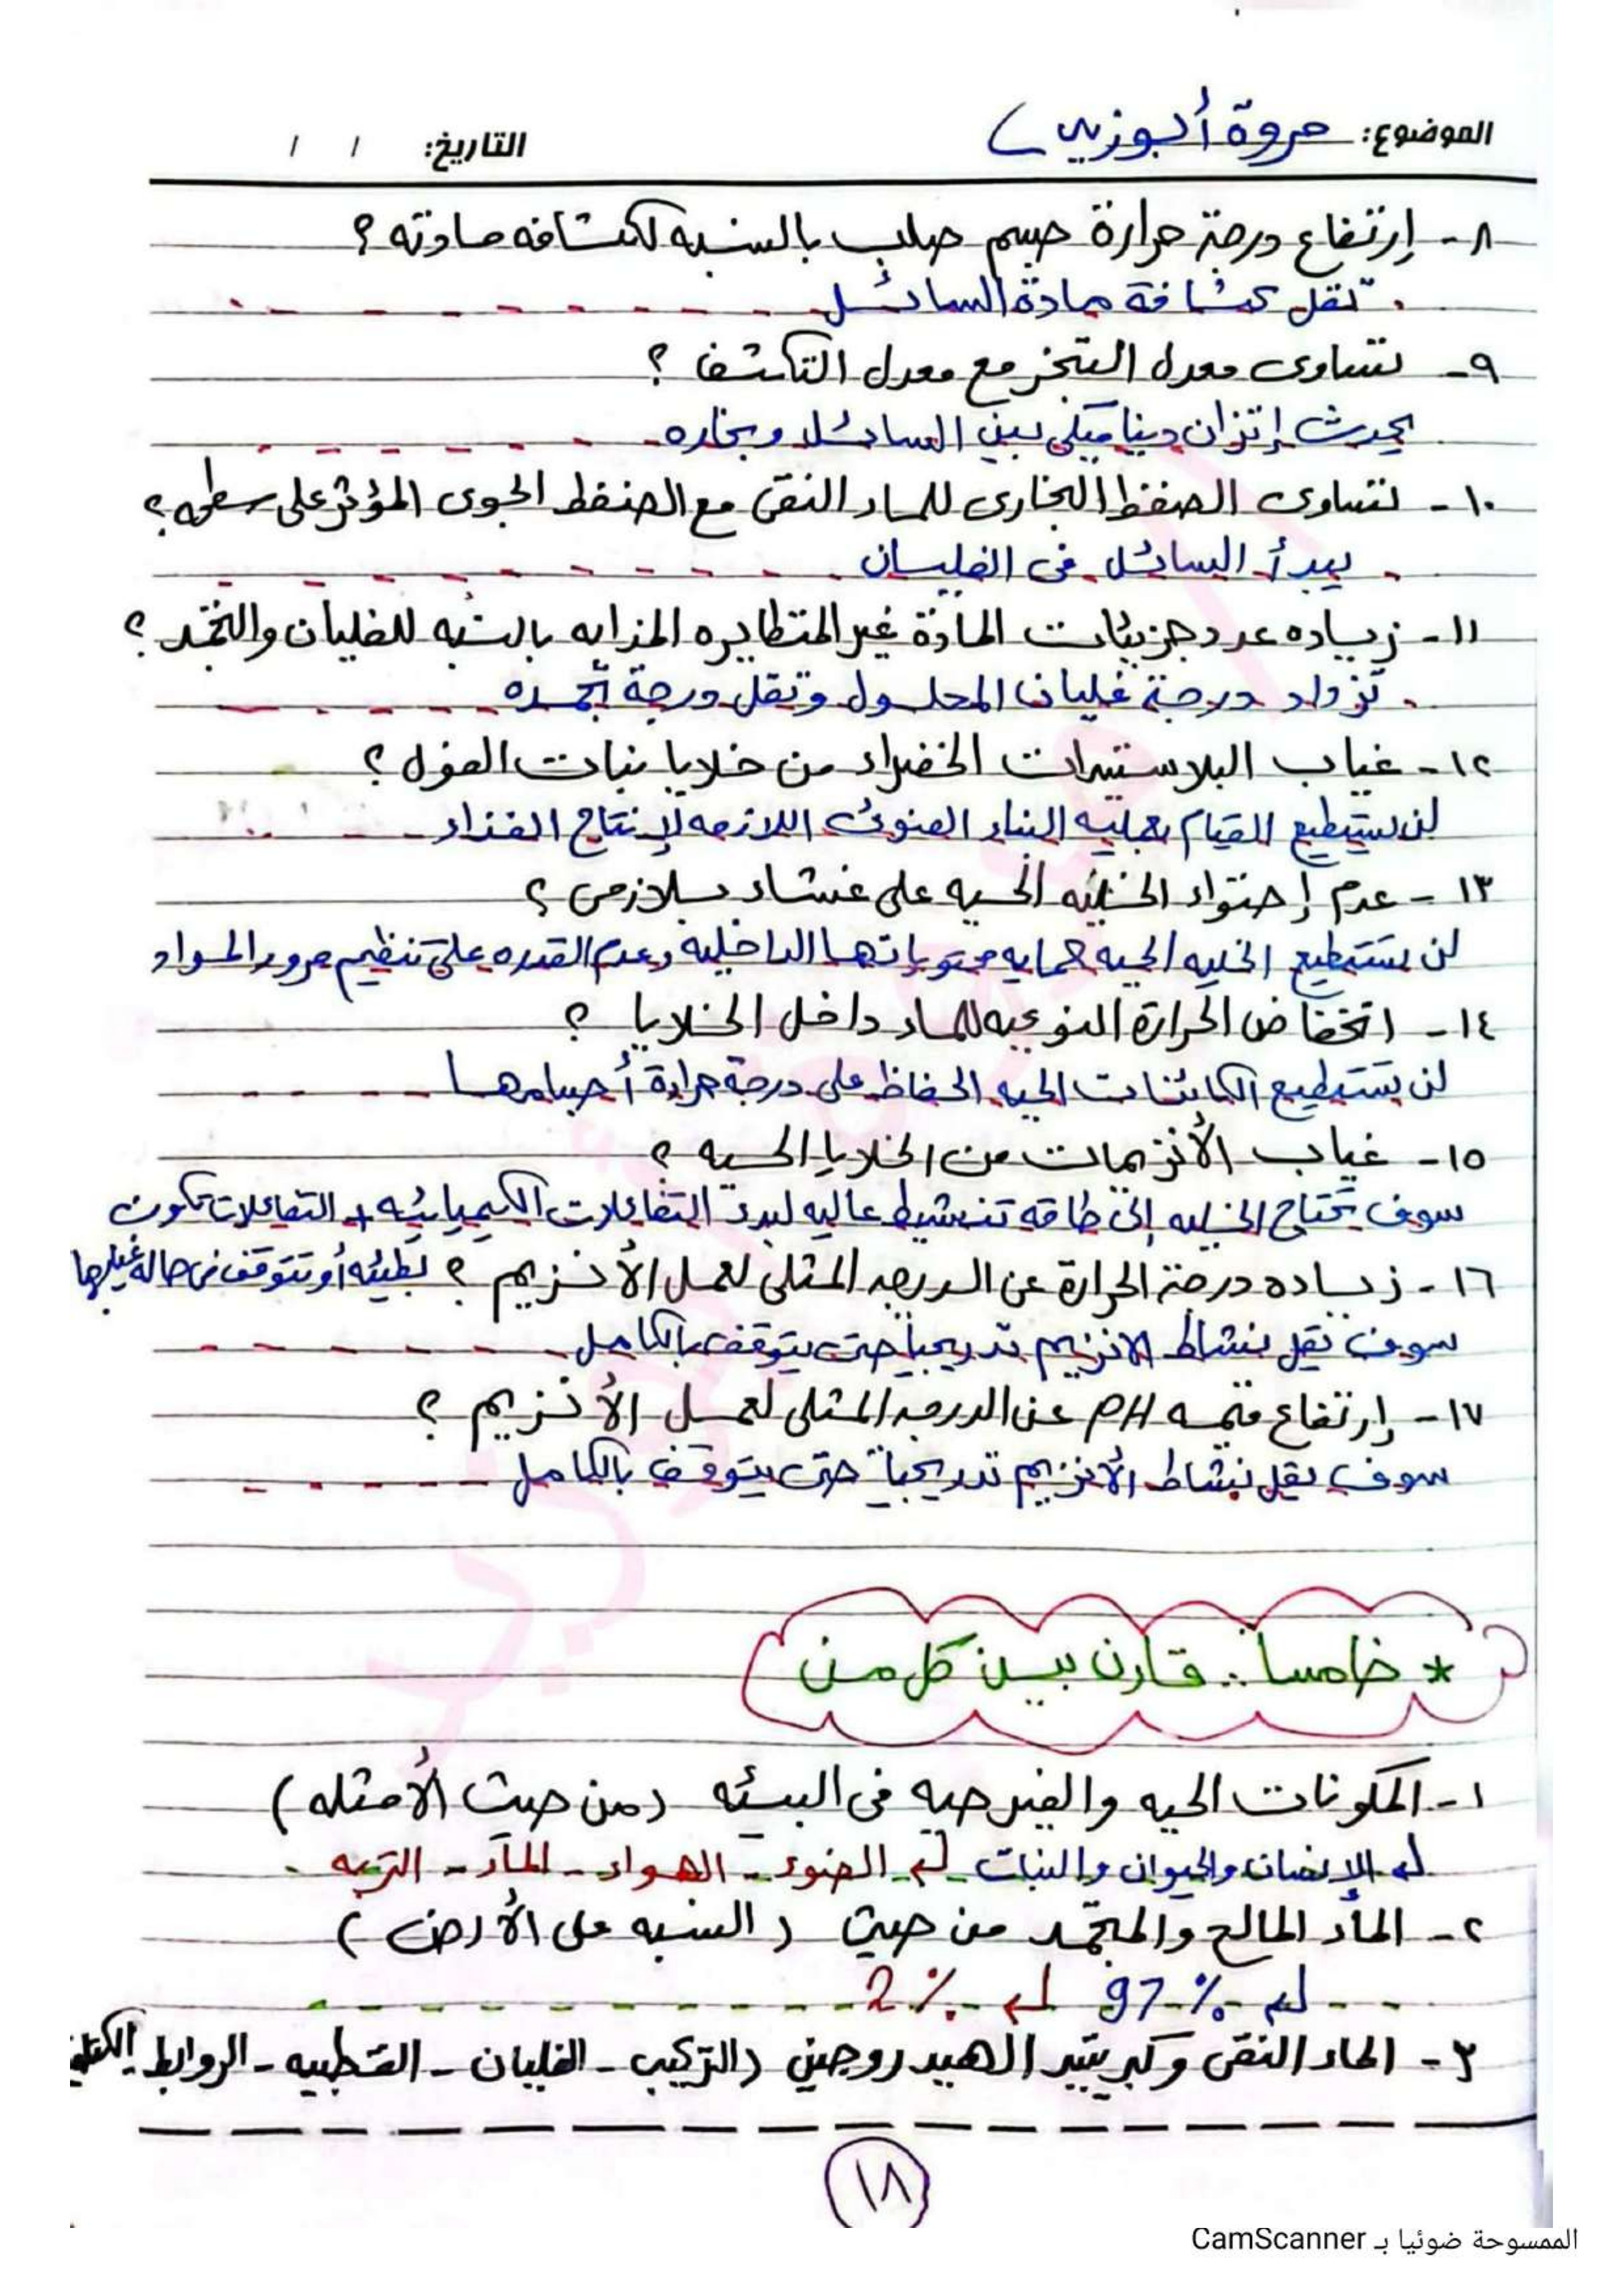 الموضوع: مروة أبوزيد
التاريخ: / /
٨- إرتفاع درجة حرارة جسم صلب بالنسبه لكثافه مادته ؟
تقل كثافة مادة السائل
٩- تساوى معدل التبخر مع معدل التكثف ؟
يحدث إتزان ديناميكى بين السائل وبخاره
١٠- تساوى الضغط البخارى للماء النقى مع الضغط الجوى المؤثر على سطحه ؟
يبدأ السائل فى الغليان
١١- زياده عدد جزيئات المادة غير المتطايره المذابه بالنسبه للغليان والتجمد ؟
تزداد درجة غليان المحلول وتقل درجة تجمده
١٢- غياب البلاستيدات الخضراء من خلايا نبات الفول ؟
لن يستطيع القيام بعمليه البناء الضوئى اللازمه لإنتاج الغذاء
١٣- عدم إحتواء الخليه الحيه على غشاء بلازمى ؟
لن يستطيع الخليه الحيه حمايه محتوياتها الداخليه وعدم القدره على تنظيم مرور المواد
١٤- انخفاض الحرارة النوعيه للماء داخل الخلايا ؟
لن يستطيع الكائنات الحيه الحفاظ على درجة حرارة أجسامها
١٥- غياب الأنزيمات من الخلايا الحيه ؟
سوف تحتاج الخليه إلى طاقه تنشيط عاليه لبدء التفاعلات الكيميائيه + التفاعلات تكون
بطيئه أو تتوقف فى حاله غيابها
١٦- زياده درجة الحرارة عن الدرجه المثلى لعمل الأنزيم ؟
سوف تقل نشاط الانزيم تدريجياً حتى يتوقف بالكامل
١٧- إرتفاع قيمه PH عن الدرجه المثلى لعمل الأنزيم ؟
سوف يقل نشاط الأنزيم تدريجياً حتى يتوقف بالكامل
* خامسا : قارن بين كل من
١- المكونات الحيه والغير حيه فى البيئه (من حيث الأمثله)
الإنسان والحيوان والنبات الضوء - الهواء - الماء - التربه
٢- الماء المالح والمتجمد من حيث (النسبه على الأرض)
97% 2%
٣- الماء النقى وكبريتيد الهيدروجين (التركيب - الغليان - القطبيه - الروابط
١٨
الممسوحة ضوئيا بـ CamScanner